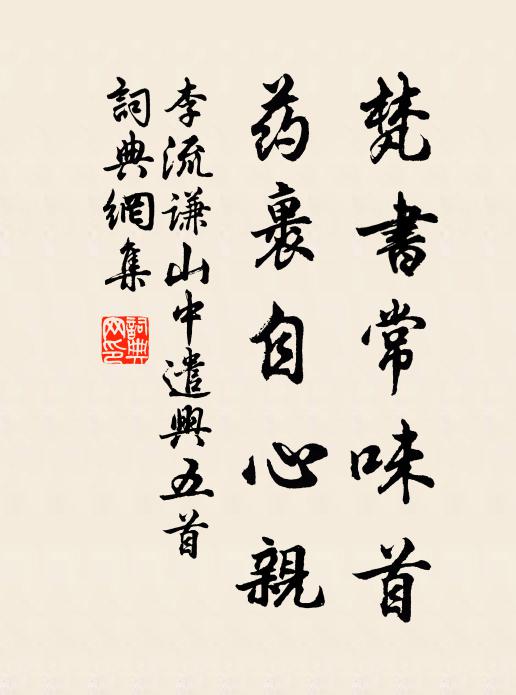 梵書常味首
药裹自心親
李流謙山中遣興五首
詞典網集
詞典網印